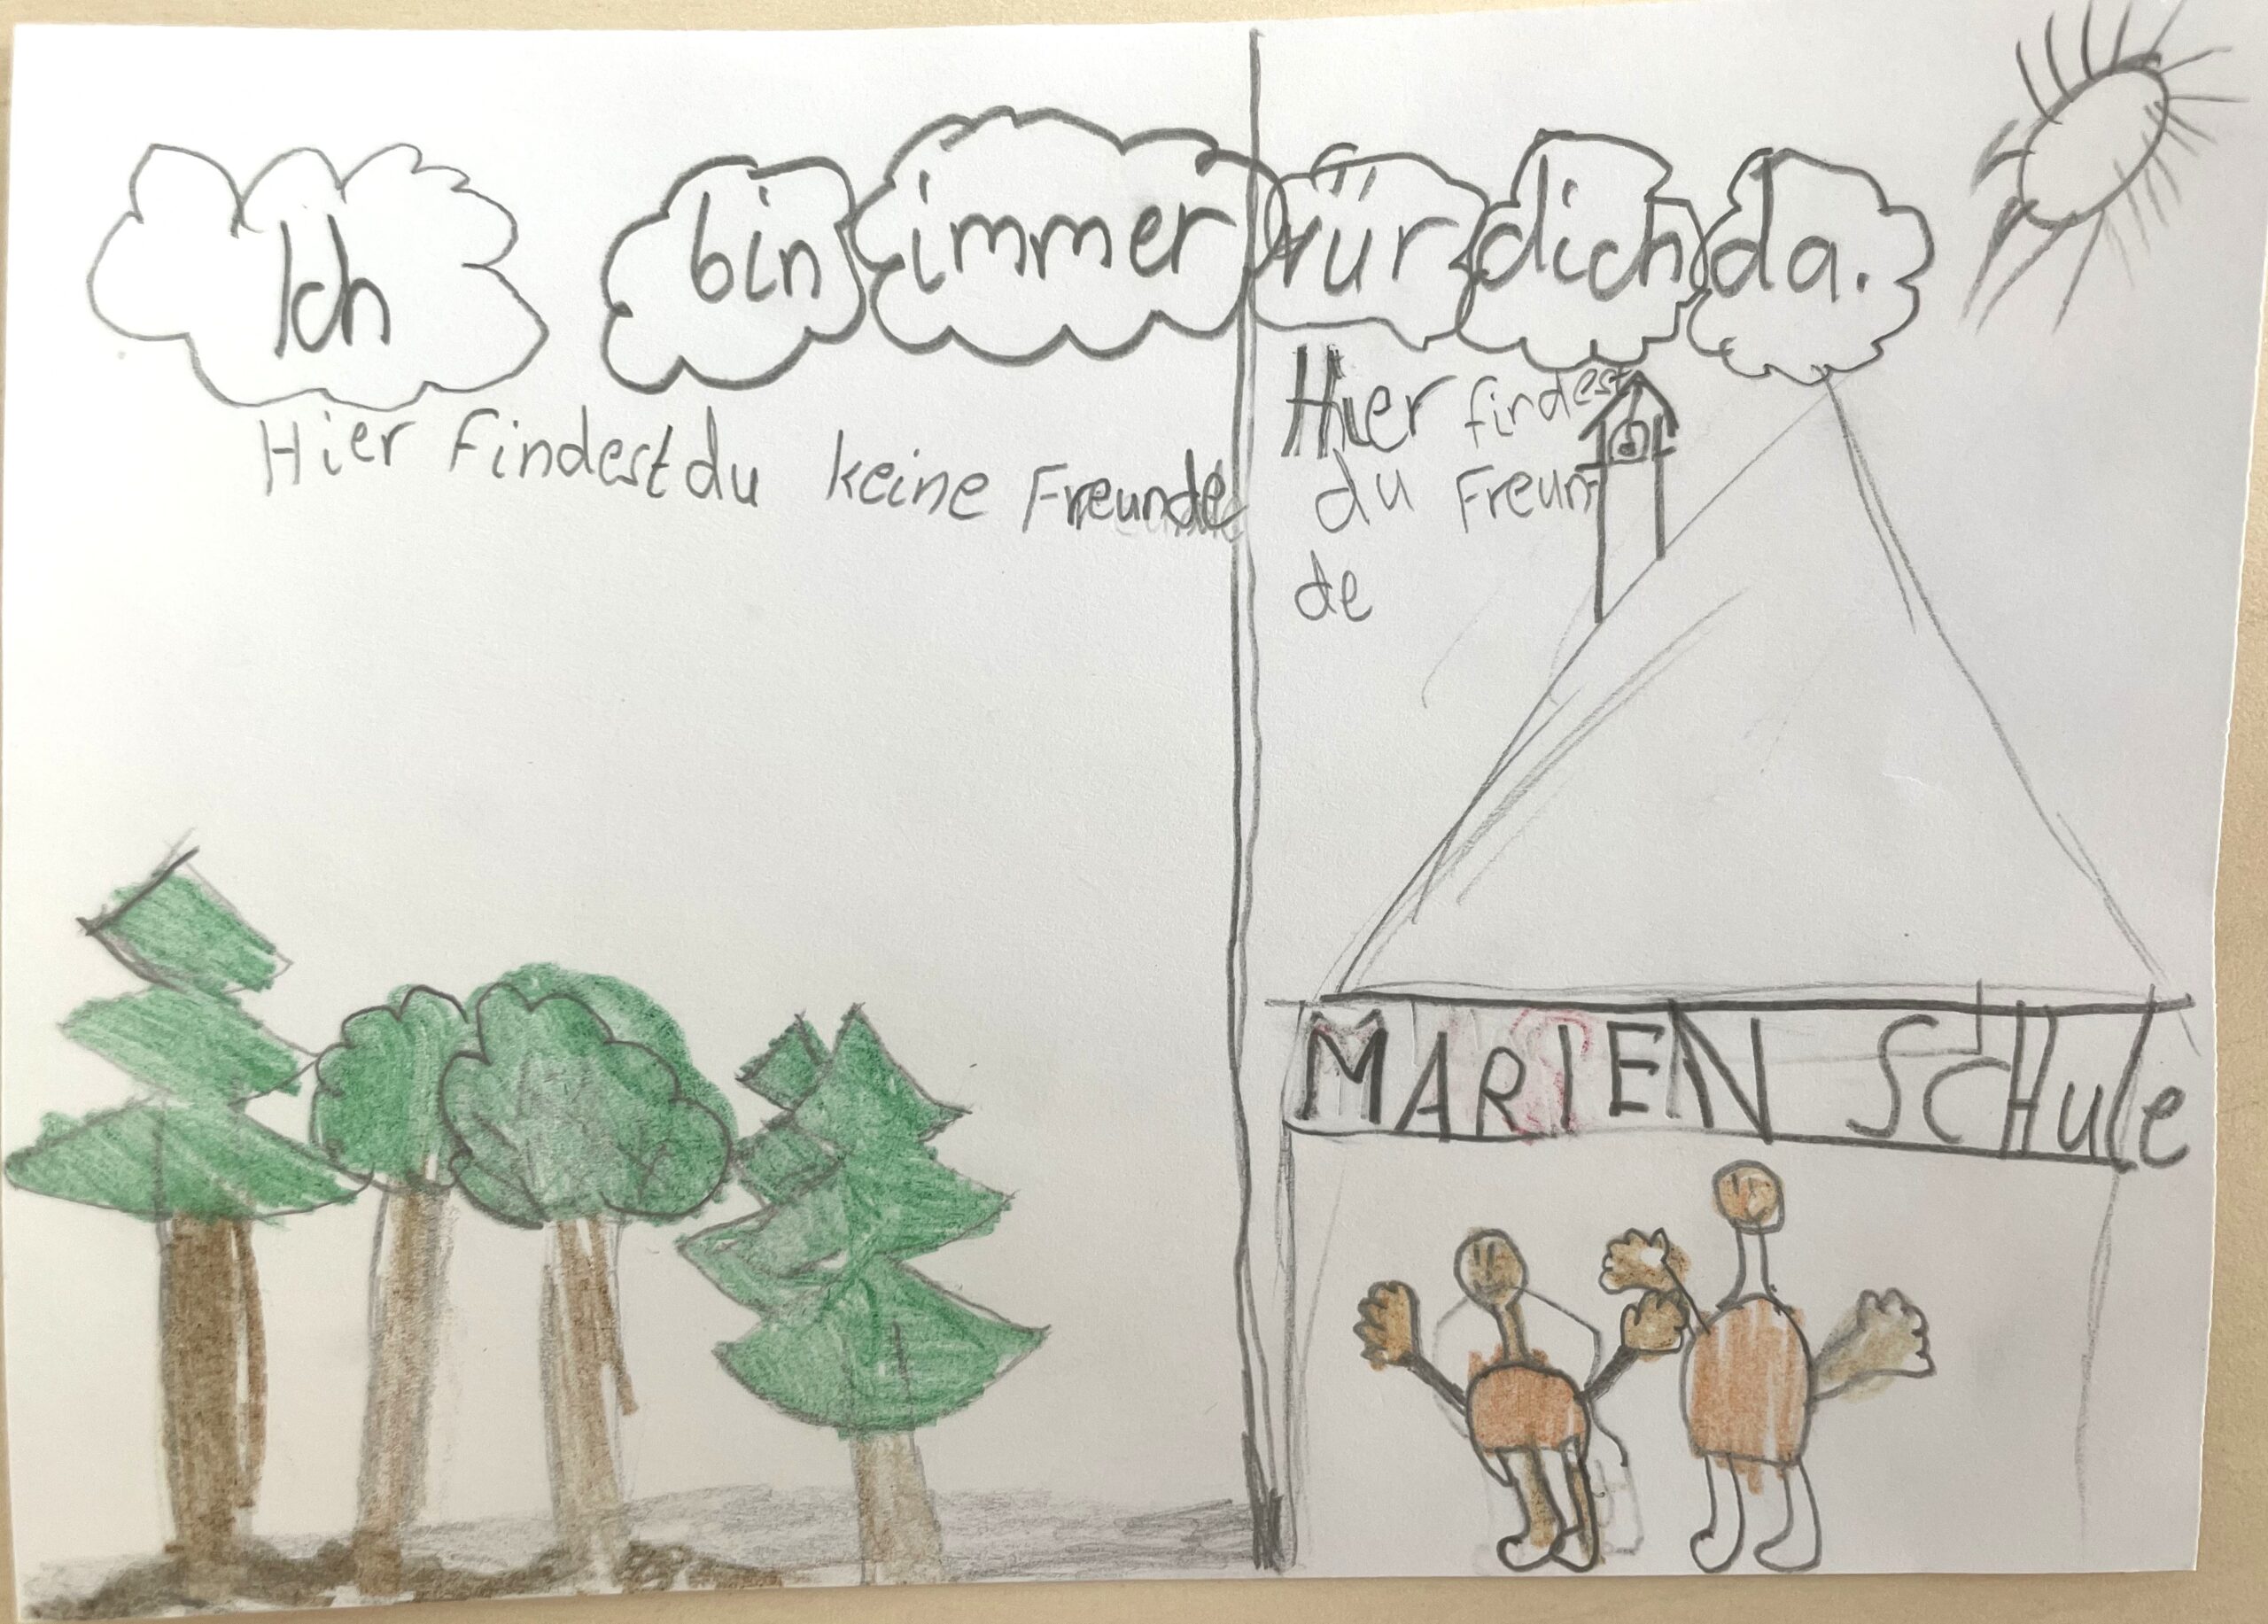 Ich bin immer für dich da.
Hier findest du keine Freunde
Hier findest
du Freun-
de
MARIEN SCHule